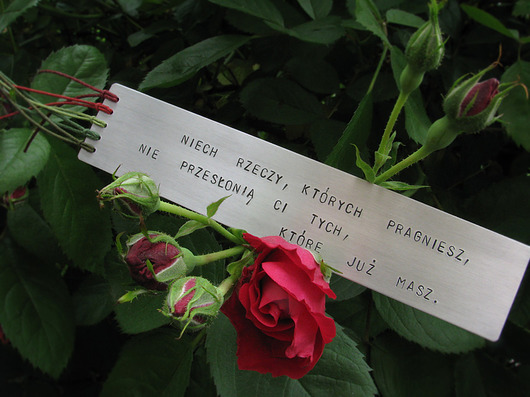 NIECH RZECZY, KTÓRYCH PRAGNIESZ,
NIE PRZESŁONIĄ CI TYCH,
KTÓRE JUŻ MASZ.